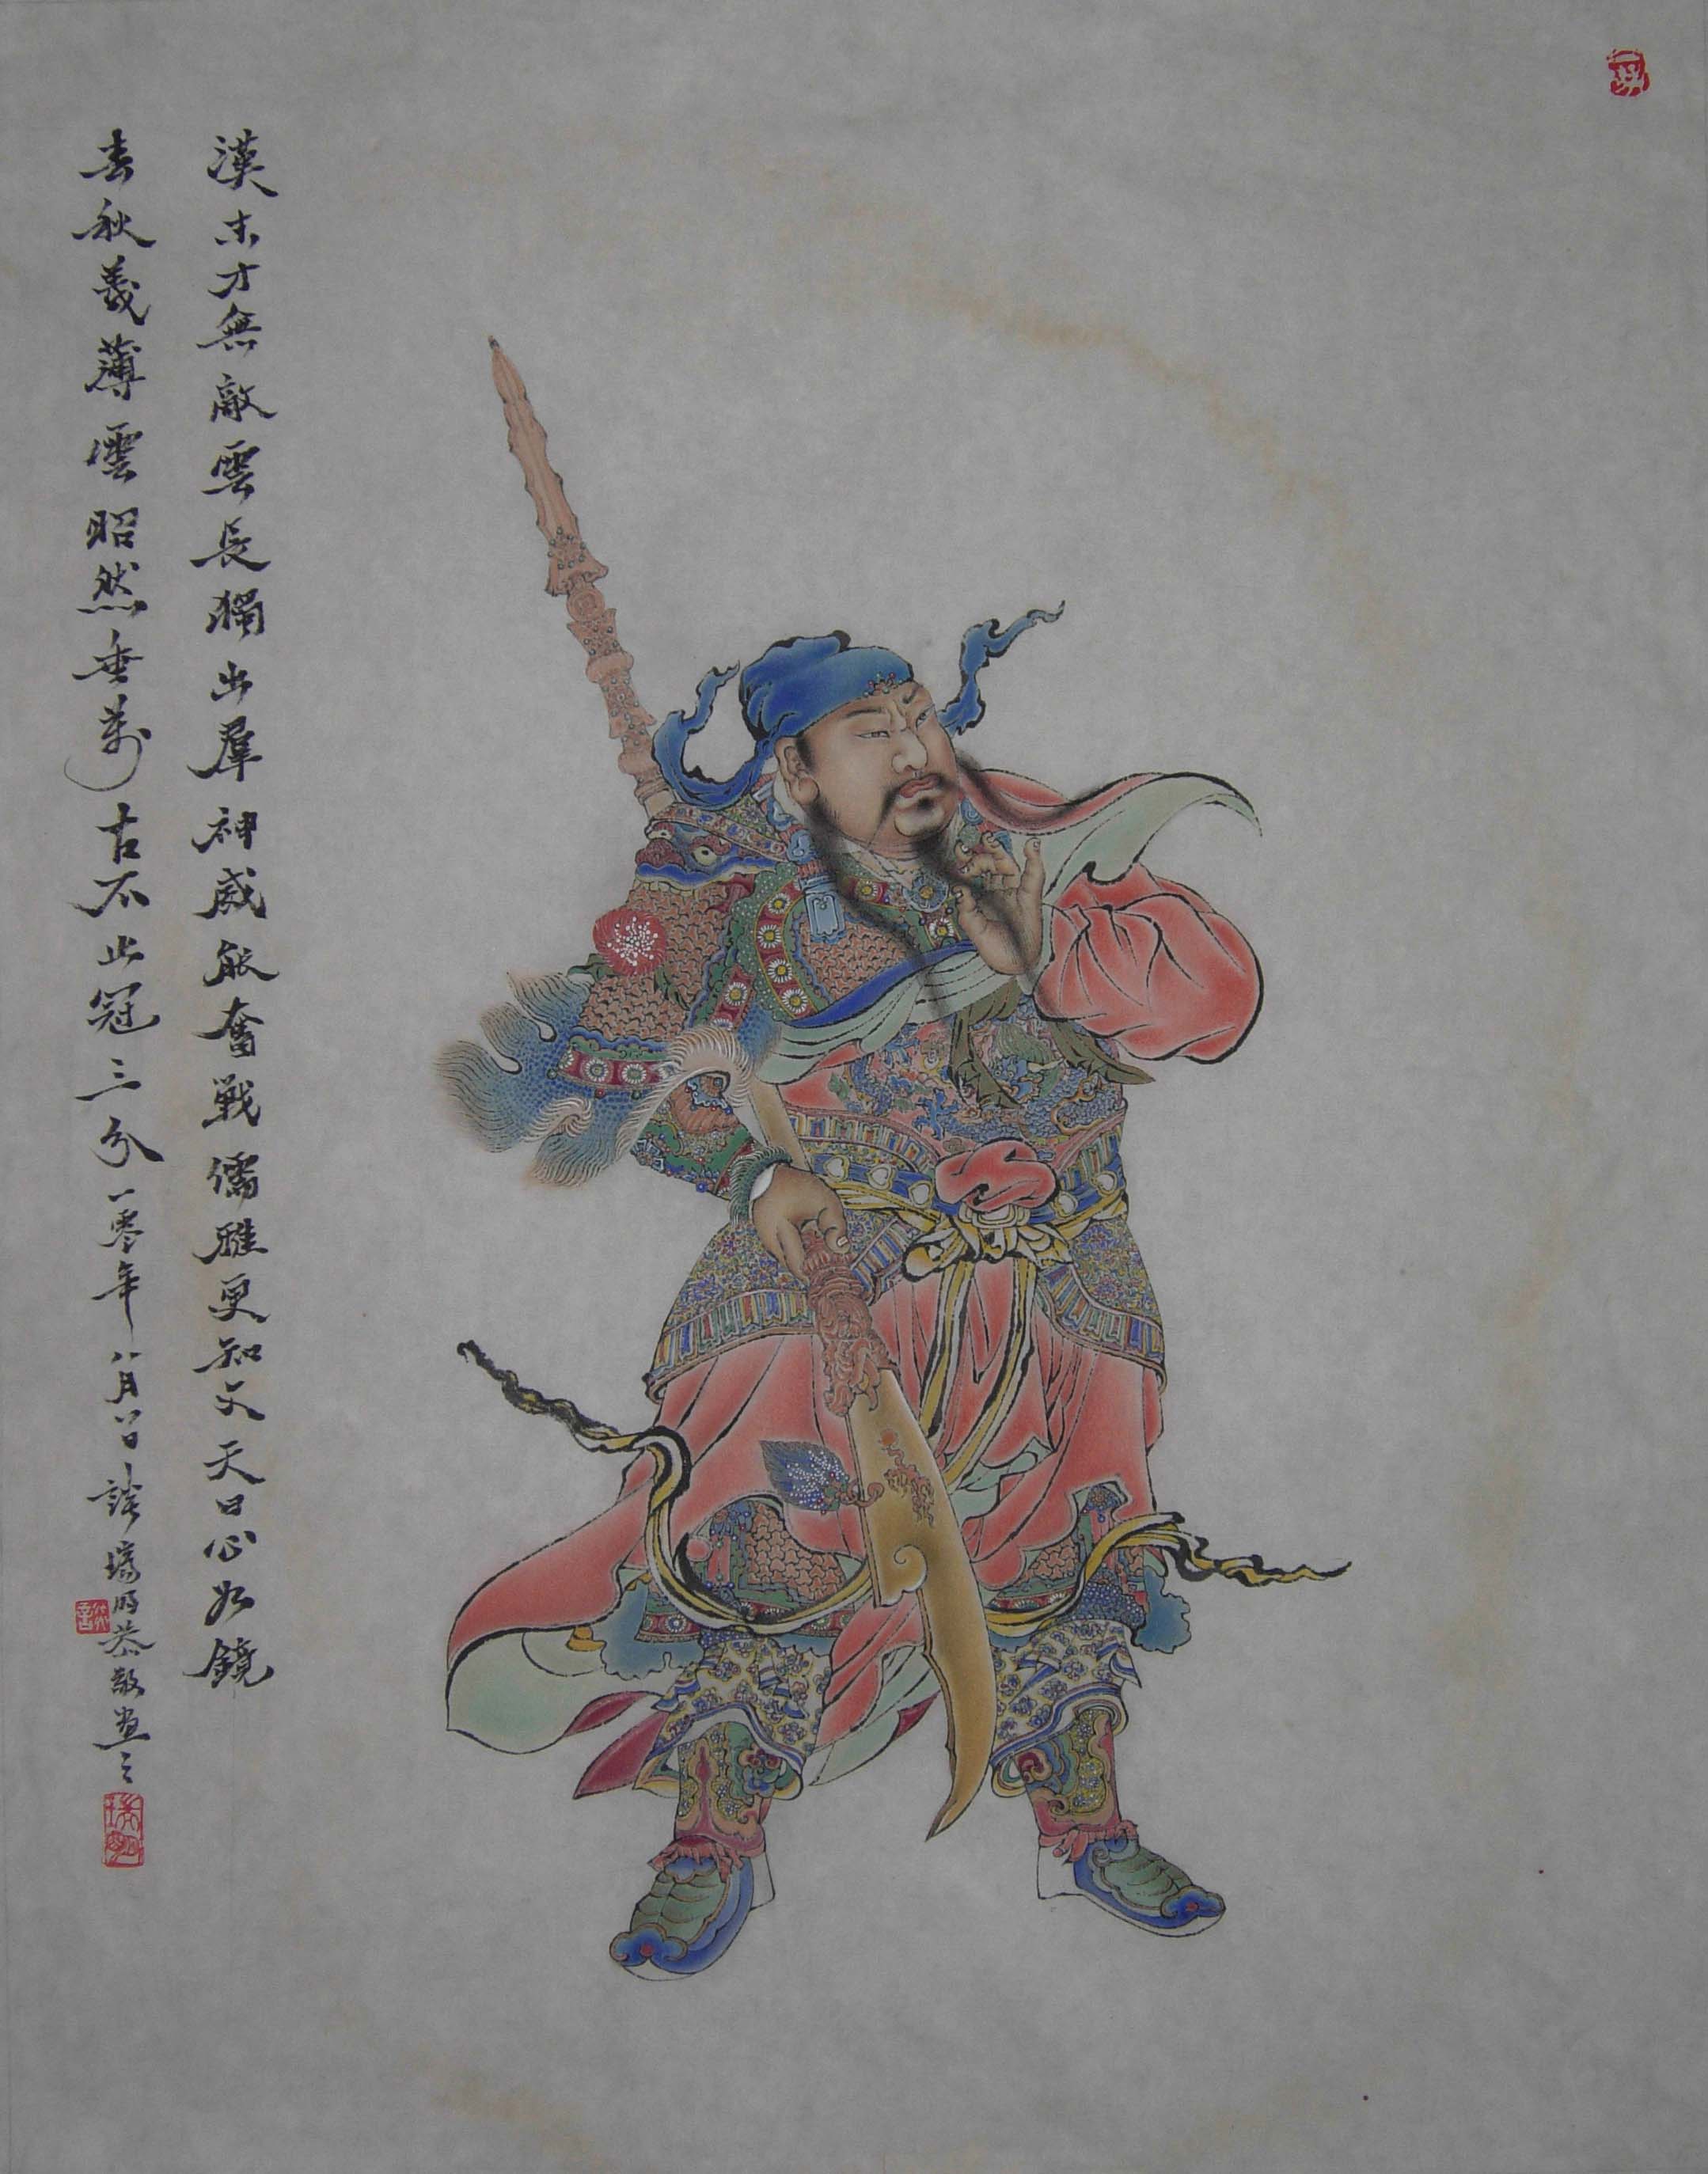 漢末才無敵雲長獨出羣神威能奮戰儒雅更知文天日心如鏡
春秋義薄雲昭然垂萬古不止冠三分一零年八月八日談瑞明恭敬畫之